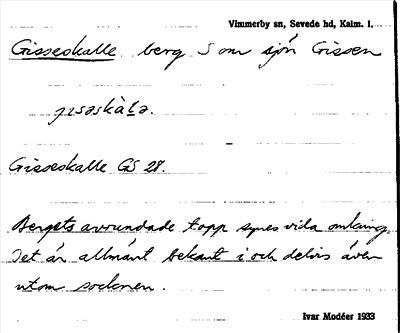 Vimmerby sn, Sevede hd, Kalm. l.
Gisseskalle berg S om sjön Gissen
jɪsəskàlə.
Gisseskalle GS 28.
Bergets avrundade topp synes vida omkring.
Det är allmänt bekant i och delvis även
utom socknen.
Ivar Modéer 1933